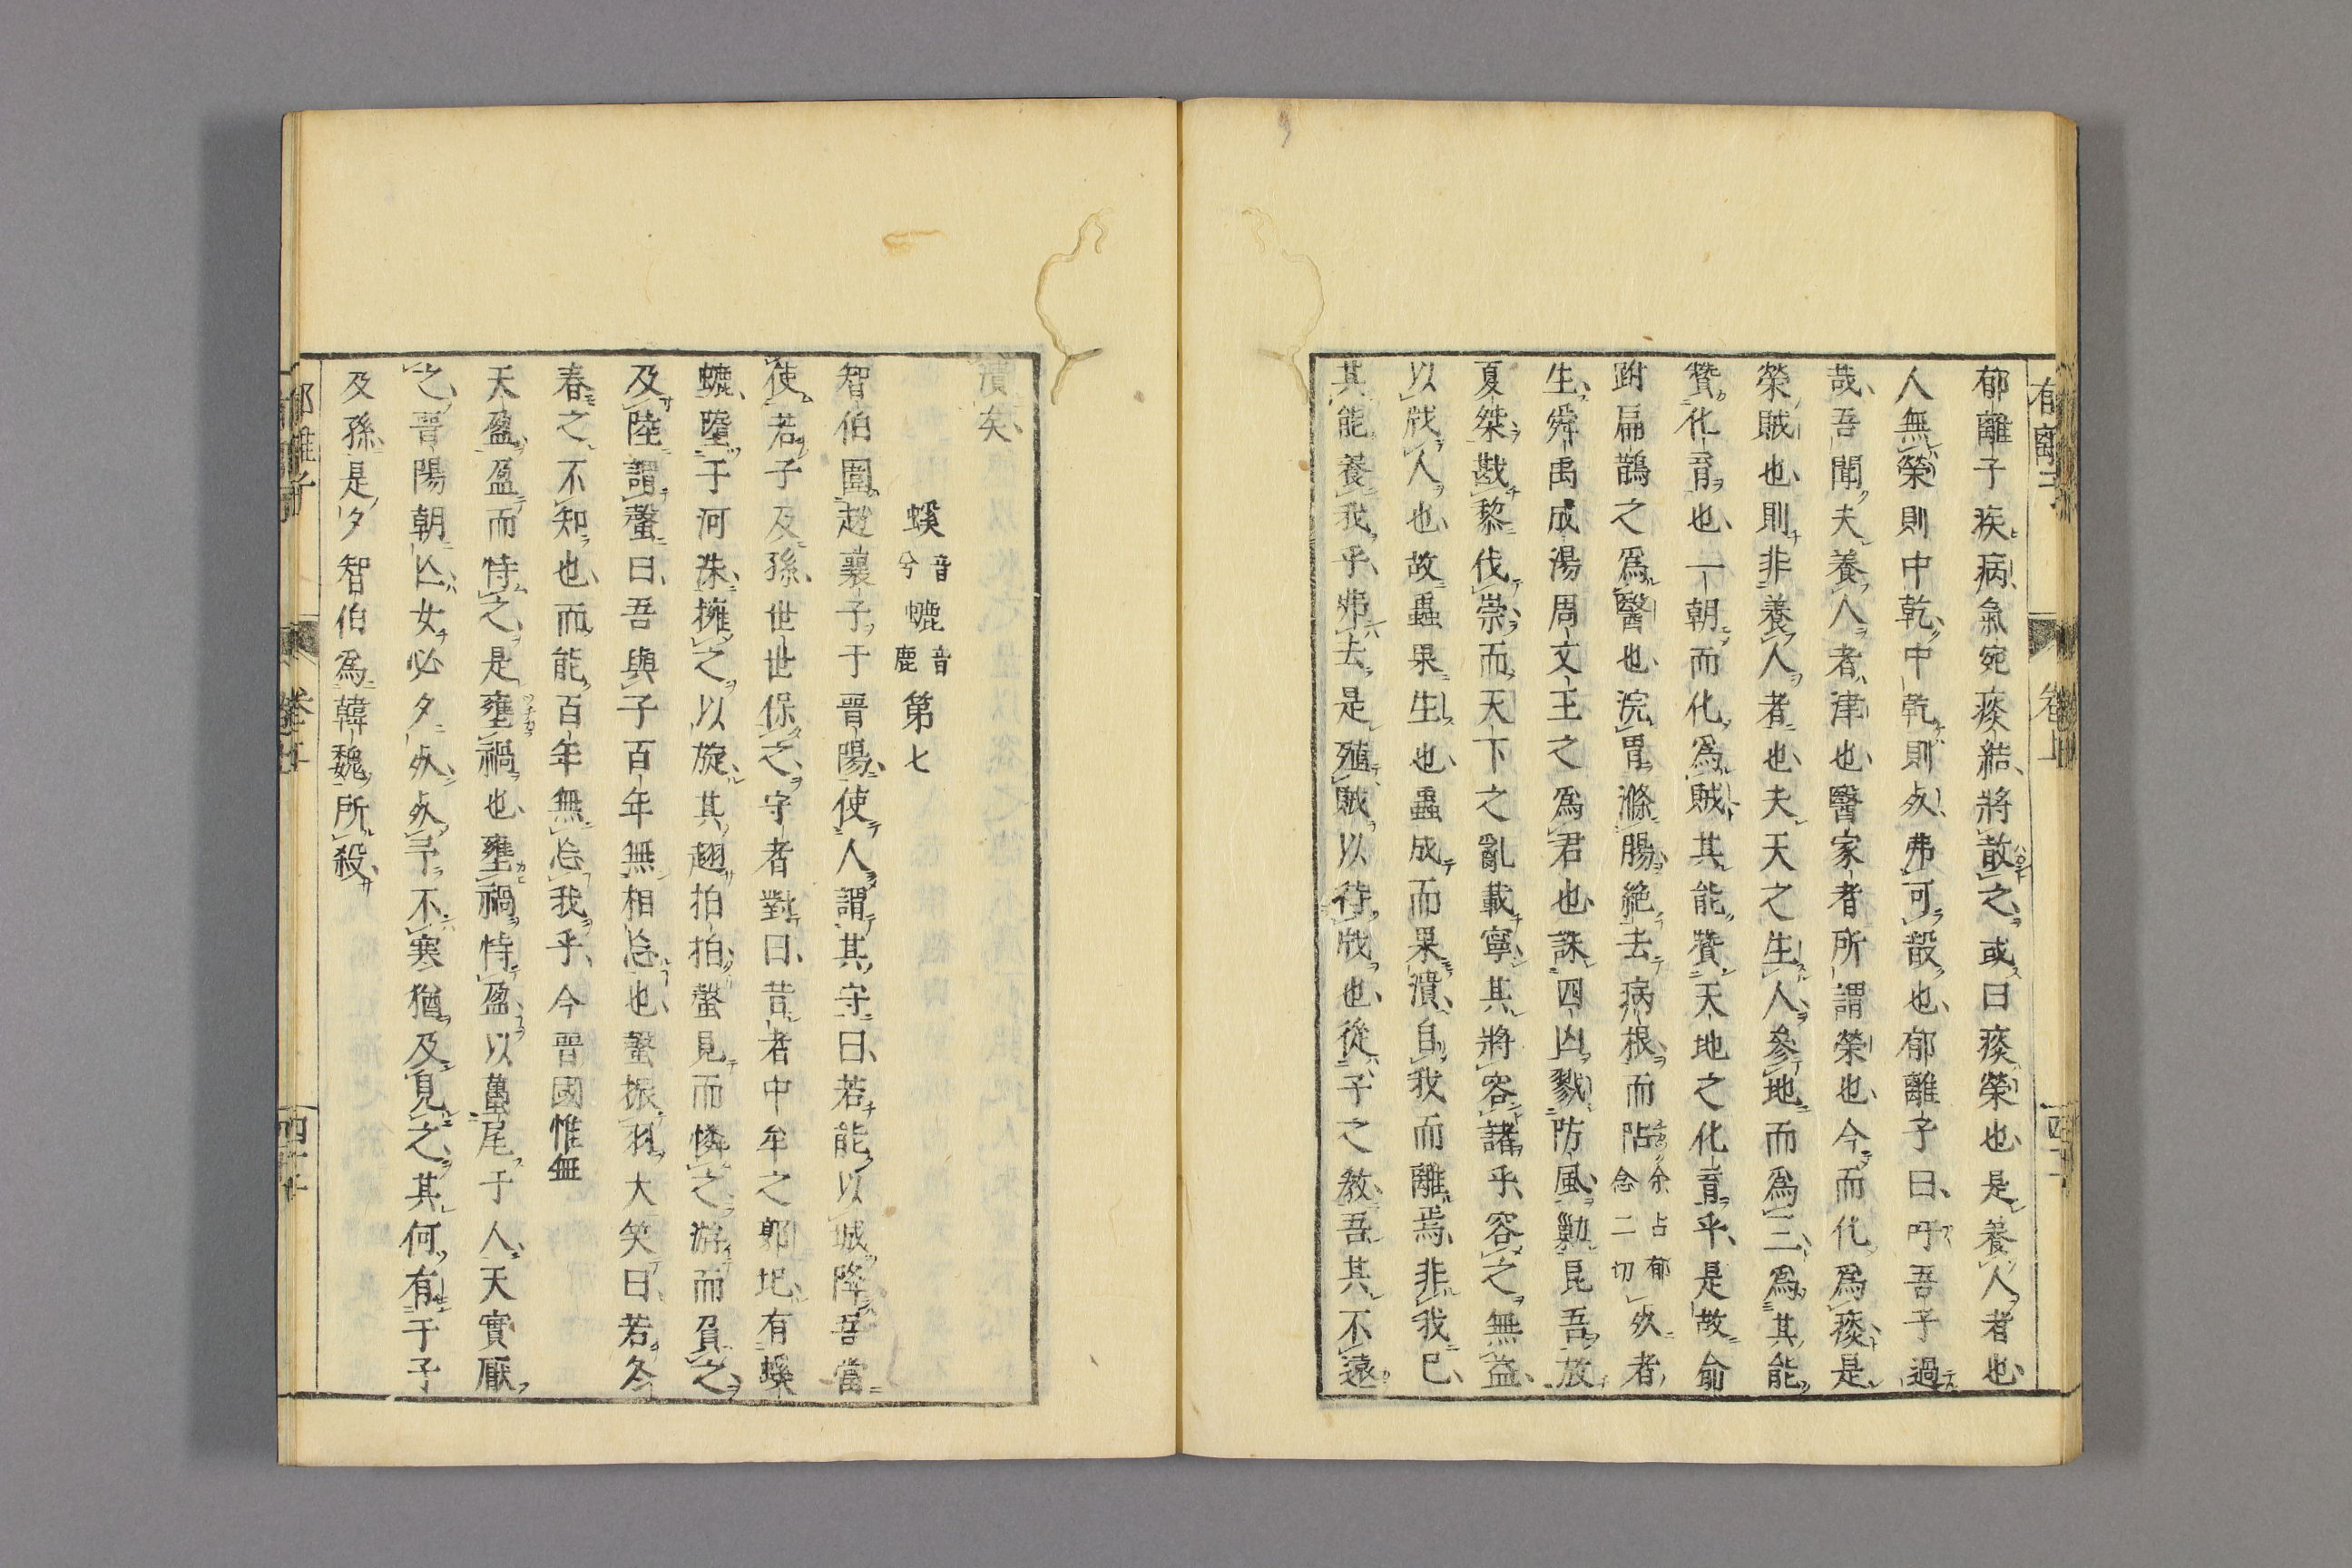 郁離子疾病氣宛痰結將散之或曰痰榮也是養人者也
人無榮則中乾中乾則死弗可散也郁離子曰吁吾子過
哉吾聞夫養人者津也醫家者所謂榮也今而化爲痰是
榮賊也則非養人者也夫天之生人參地而爲三爲其能
贊化育也一朝而化爲賊其能贊天地之化育乎是故俞
跗扁鵲之爲醫也浣胃滌腸絶去病根而阽余占郁念二切死者
生舜禹成湯周文王之爲君也誅四凶戮防風勦昆吾放
夏桀戡黎伐崇而天下之亂載寧其將容諸乎容之無益
以戕人也故蟲果生也蟲成而果潰自我而離焉非我已
其能養我乎弗去是殖賊以待戕也從子之教吾其不遠
潰矣
螇音兮螰音鹿第七
智伯圍趙襄子于晉陽使人謂其守曰若能以城降吾當
使若子及孫世世保之守者對曰昔者中牟之郭圮有螇
螰墮于河洙擁之以旋其翅拍拍螯見而憐之游而負之
及陸謂螯曰吾與子百年無相忘也螯振羽大笑曰若冬
春之不知也而能百年無忘我乎今晉國惟無
天盈盈而恃之是壅禍也壅禍恃盈以蠆尾于人天實厭
之晉陽朝亡女必夕死死予不寒猶及見之其何有于子
及孫是夕智伯爲韓魏所殺
郁離子 卷上